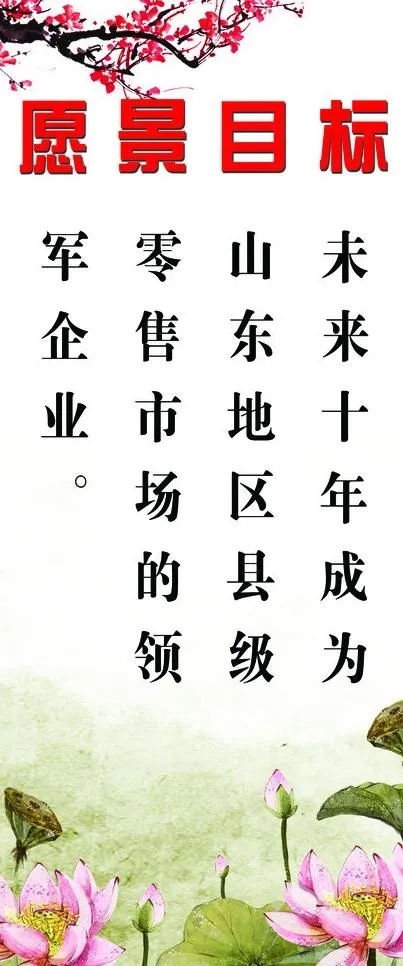 愿景目标
未来十年成为
山东地区县级
零售市场的领
军企业。